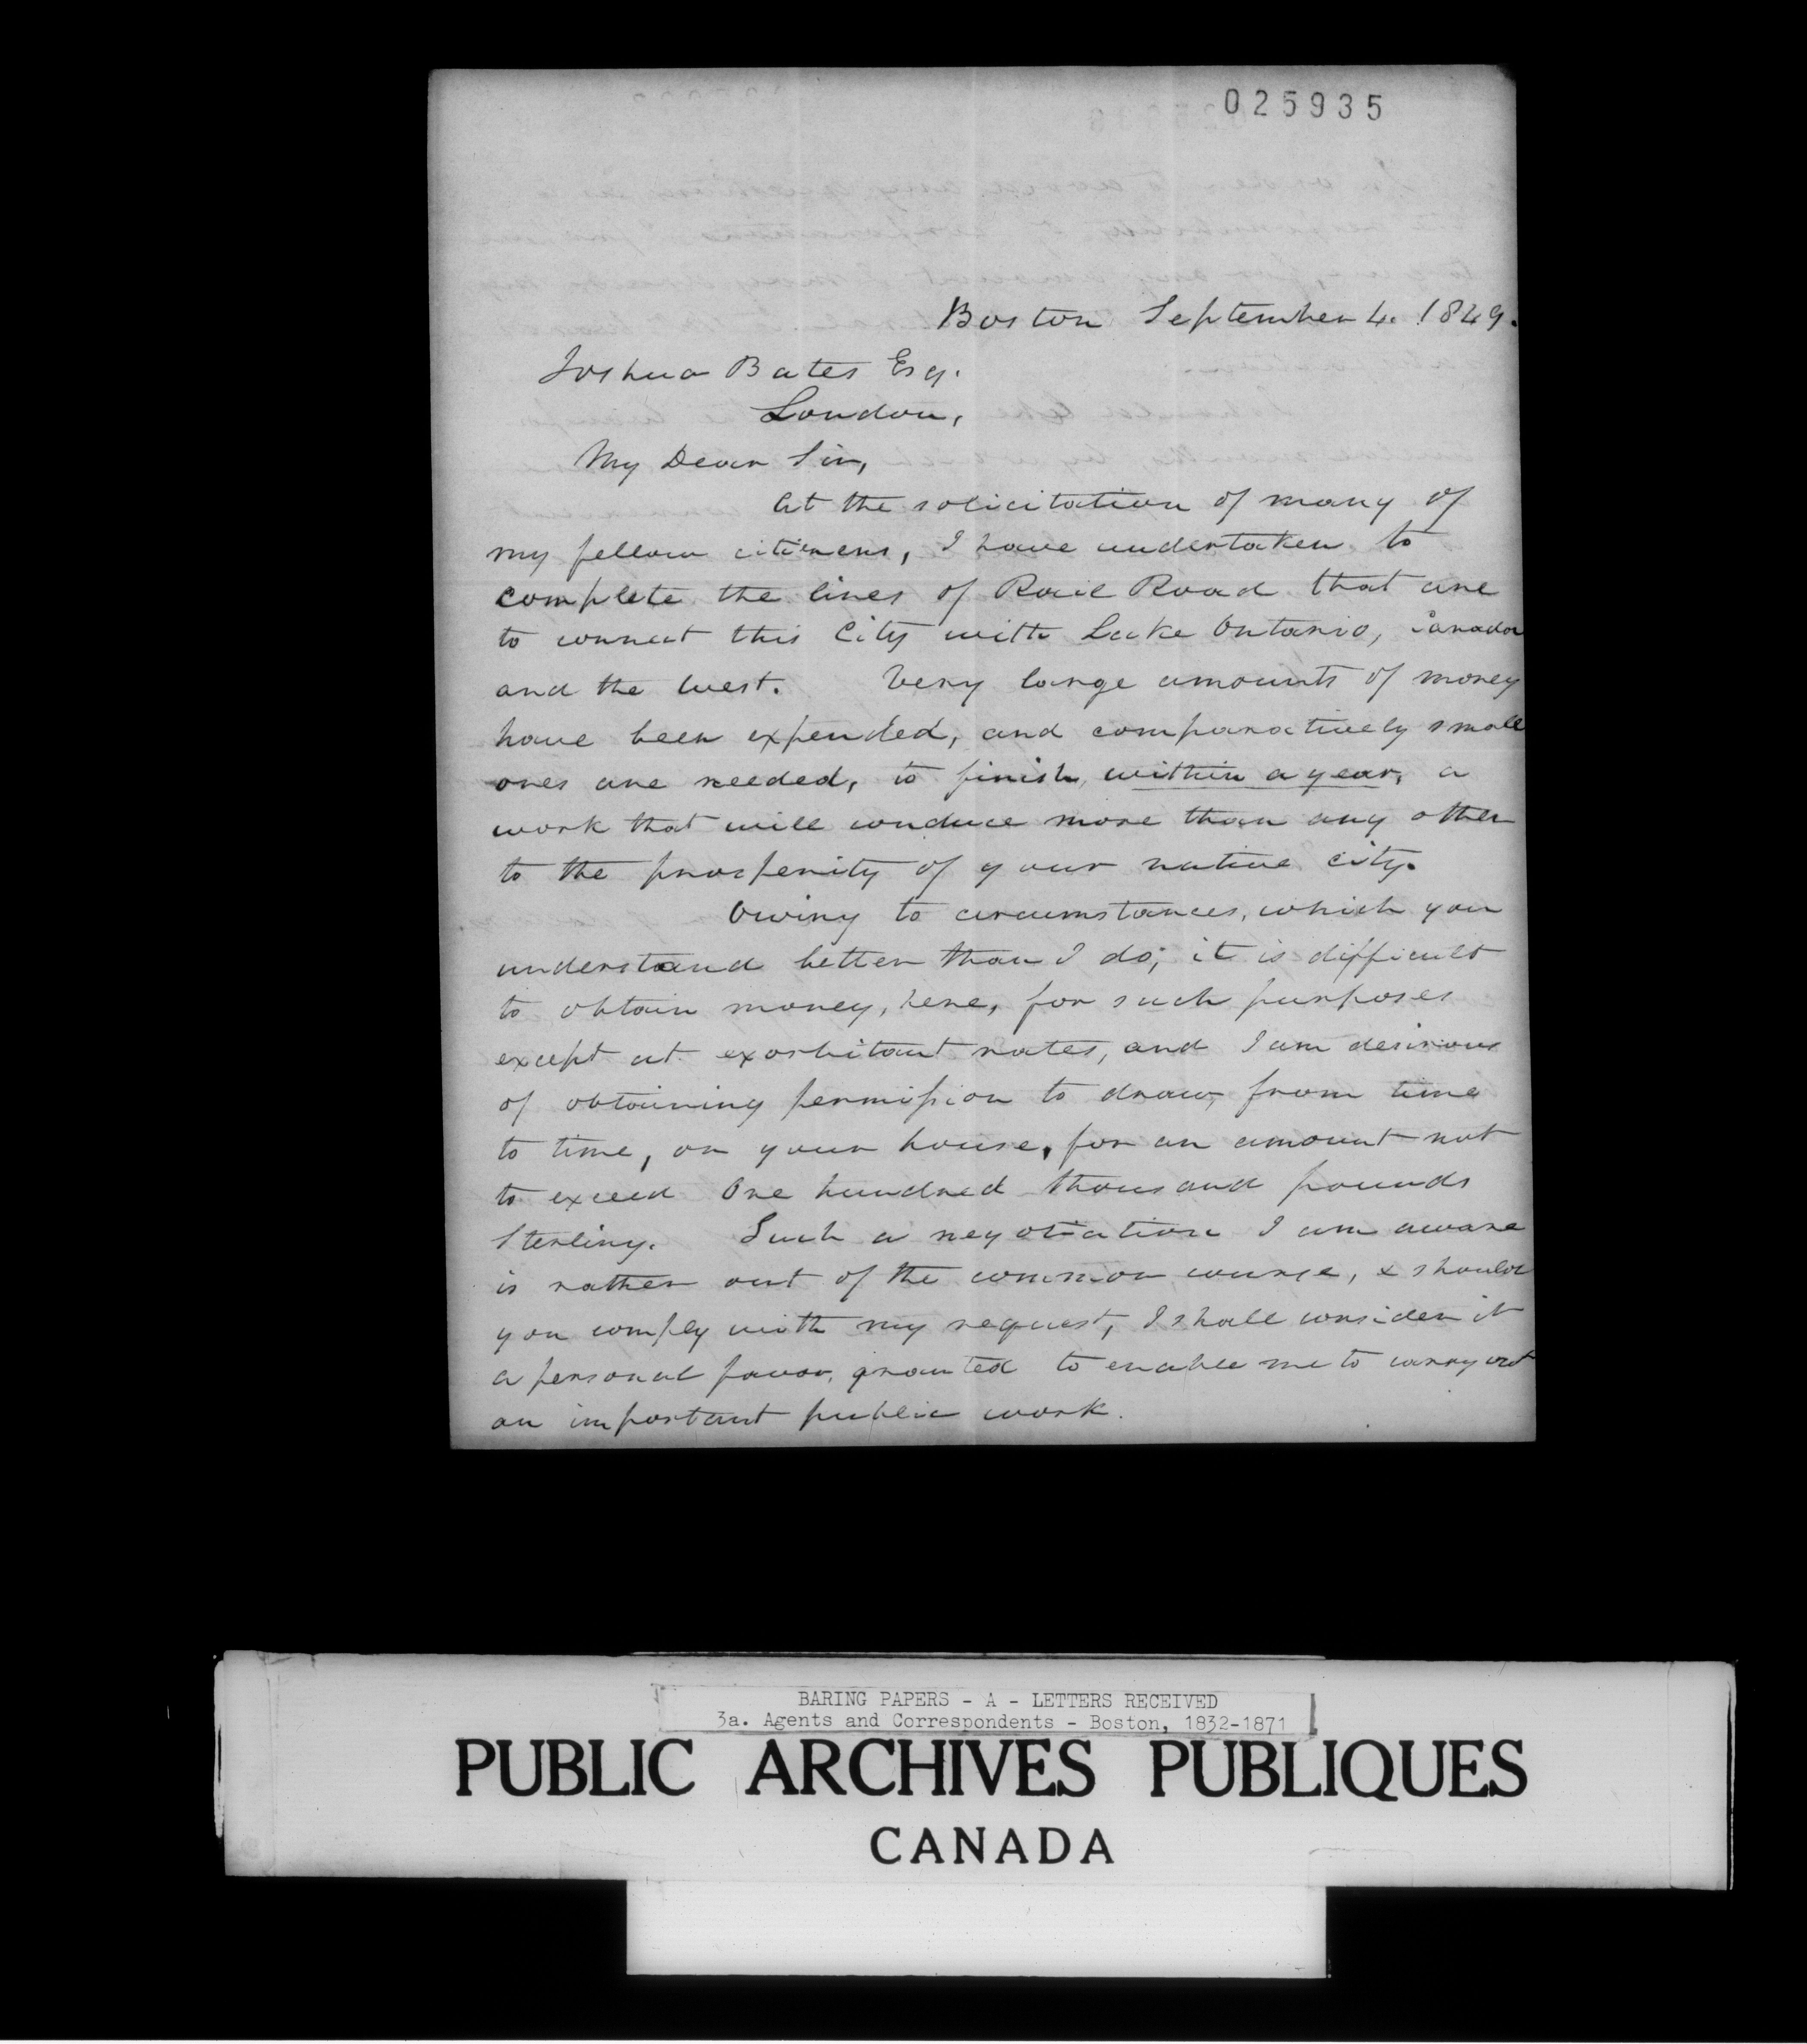 025935
Boston September 4. 1849.
Joshua Bates Esq.
London,
My Dear Sir,
At the solicitation of many of
my fellow citizens, I have undertaken to
complete the lines of Rail Road that are
to connect this City with Lake Ontario, Canada
and the West. Very large amounts of money
have been expended, and comparatively small
ones are needed, to finish, within a year, a
work that will conduce more than any other
to the prosperity of your native city.
Owing to circumstances, which you
understand better than I do; it is difficult
to obtain money, here, for such purposes
except at exorbitant rates, and I am desirous
of obtaining permission to draw, from time
to time, on your house, for an amount not
to exceed One hundred thousand pounds
Sterling. Such a negotiation I am aware
is rather out of the common course, & should
you comply with my request, I shall consider it
a personal favor, granted to enable me to carry out
an important public work.
BARING PAPERS - A - LETTERS RECEIVED
3a. Agents and Correspondents - Boston, 1832-1871
PUBLIC ARCHIVES PUBLIQUES
CANADA